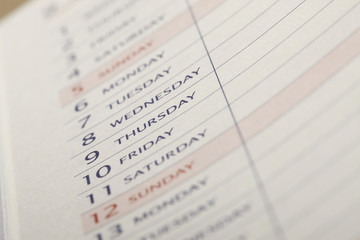 2
3 FRIDAY
4 SATURDAY
5 SUNDAY
6 MONDAY
7 TUESDAY
8 WEDNESDAY
9 THURSDAY
10 FRIDAY
11 SATURDAY
12 SUNDAY
13 MONDAY
TUESDAY